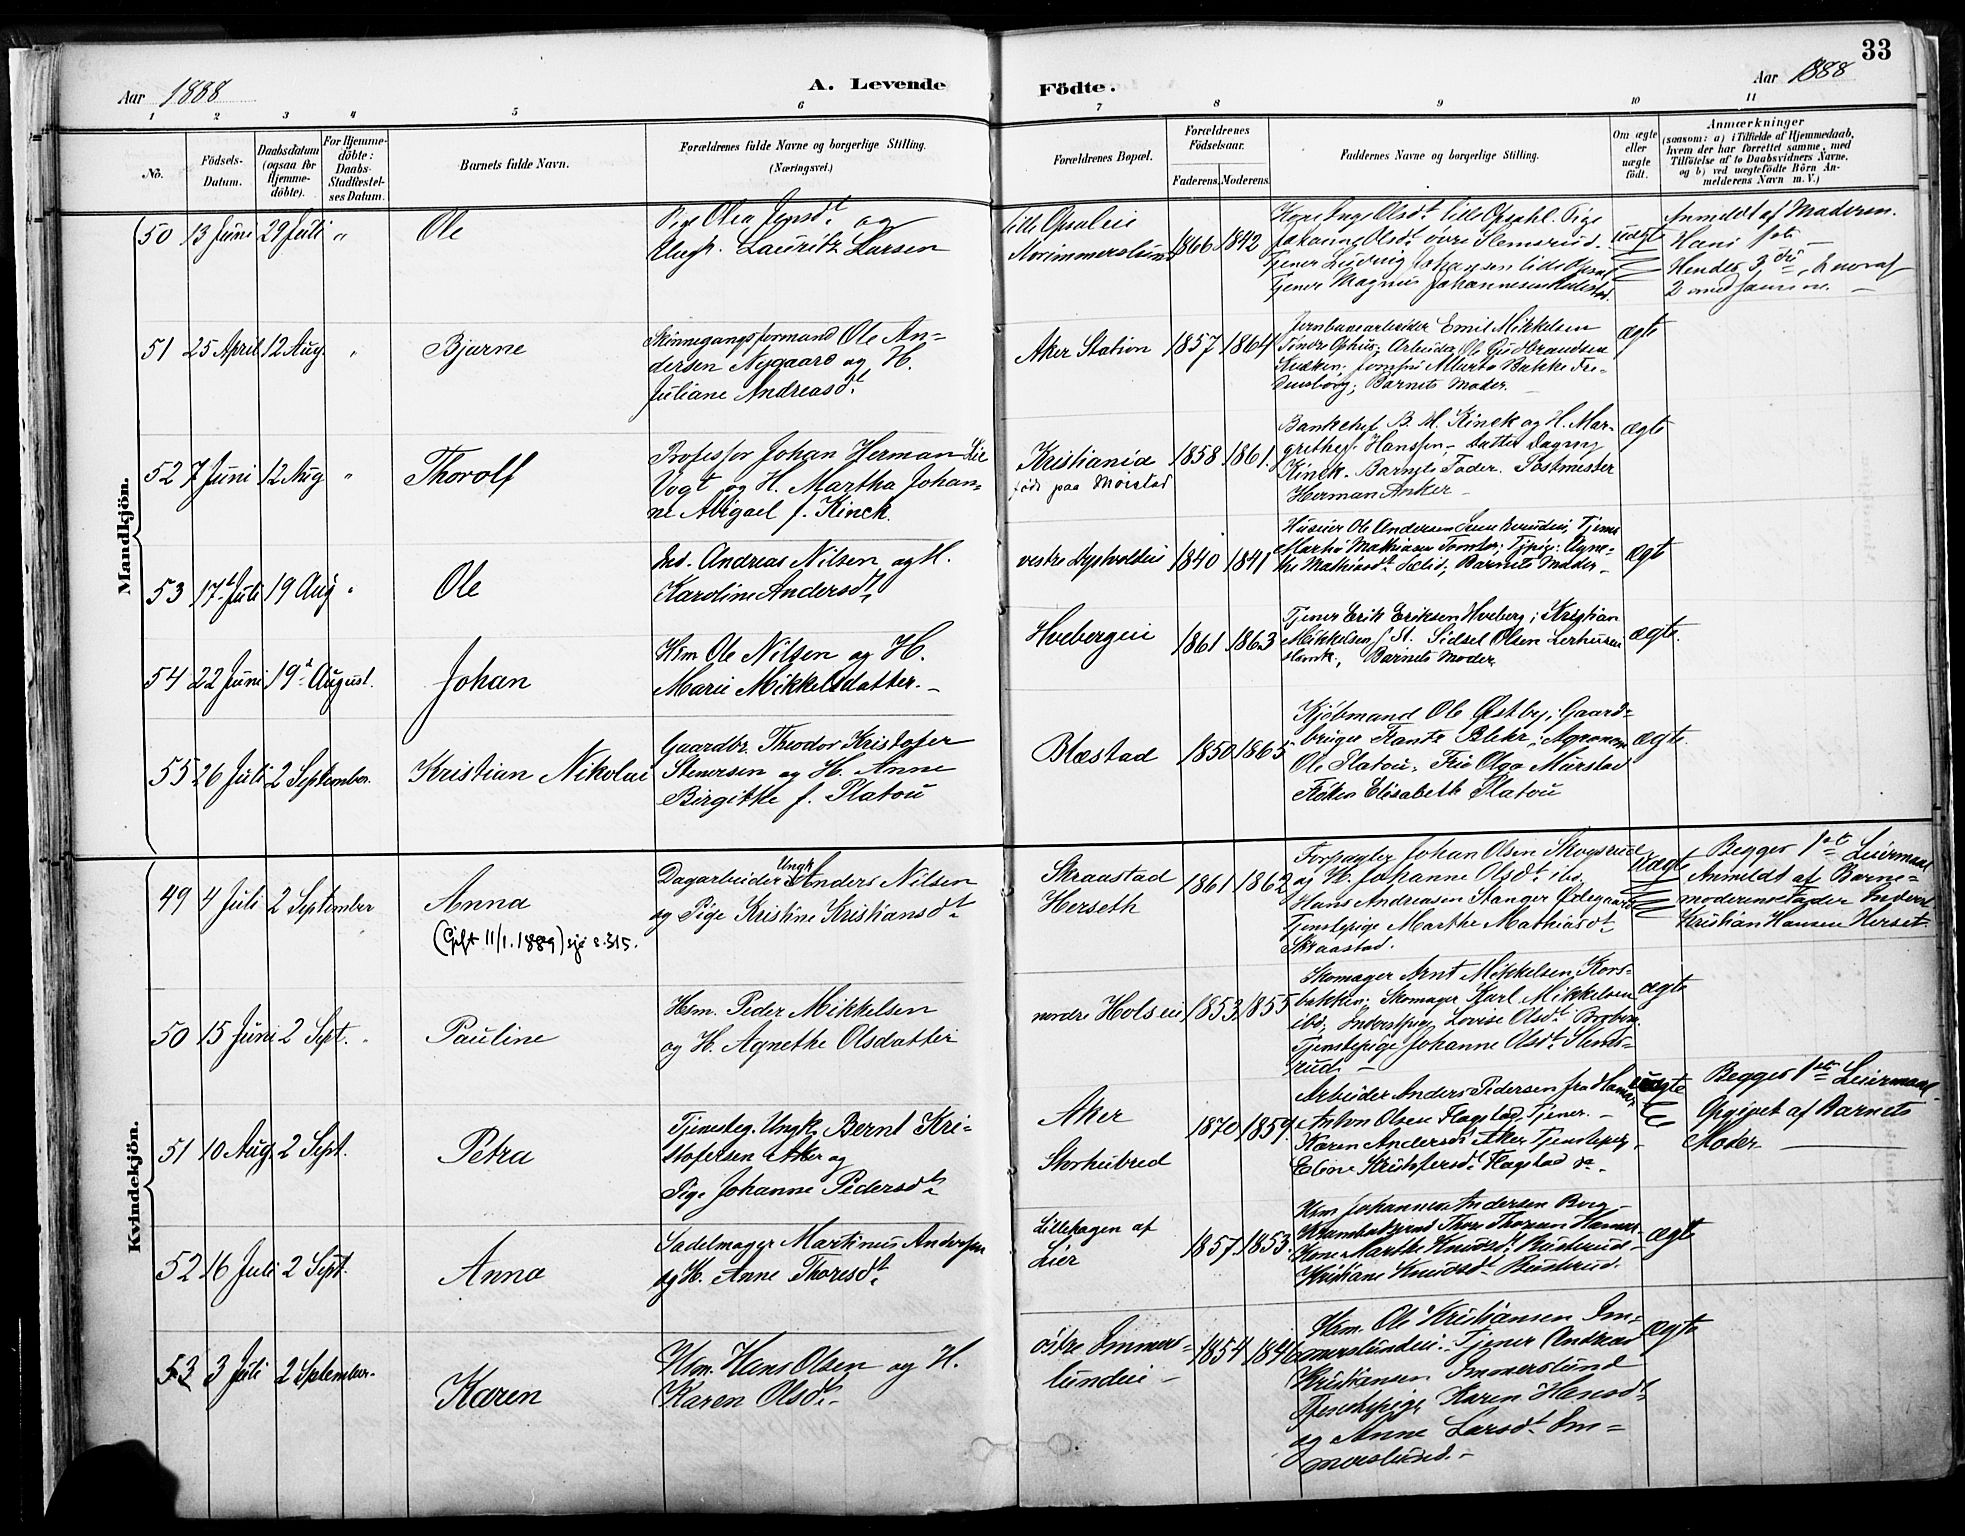 33
Aar 1888
A. Levende
Födte.
Aar 1888
1 2 3 4 5 6 7 8 9 10 11
No.
Födsels-
Datum.
Daabsdatum
(ogsaa for
Hjemme-
döbte).
For Hjemme-
döbte:
Daabs-
Stadfæstel-
ses Datum.
Barnets fulde Navn.
Forældrenes fulde Navne og borgerlige Stilling.
(Næringsvei.)
Forældrenes Bopæl.
Forældrenes
Födselsaar.
Faderens. Moderens.
Faddernes Navne og borgerlige Stilling.
Om ægte
eller
uægte
födt.
Anmærkninger
(saasom: a) i Tilfælde af Hjemmedaab,
hvem der har forrettet samme, med
Tilföielse af to Daabsvidners Navne,
og b) ved uægtefödte Börn An-
melderens Navn m. V.)
Mandkjön.
50 13 Juni 29 Juli " Ole
Pige Olea Jensdt og
Ungk. Lauritz Larsen
lille Opsaleie
1866 1842
uægte
Anmeldt af Moderen.
Hans 1ste
Hendes 3die
51 25 April 12 Aug. " Bjarne
Skinnegangsformand Ole An-
dersen Nygaard og H.
Juliane Andreasdt
Aker Station 1857 1864
Jernbanearbeider Emil Mikkelsen
Barnets Moder.
ægte
52 7 Juni 12 Aug " Thorolf
Professor Johan Herman Lie
Vogt og H. Martha Johan-
ne Abigael f. Kinck.
Kristiania
født paa
1858 1861.
Bankchef B. M. Kinck og H. Mar-
grethe f. Hanssen, Datter Dagny
Kinck. Barnets Fader. Postmester
Herman Anker
ægte
53 17de Juli 19 Aug " Ole
Ind. Andreas Nilsen og H.
Karoline Andersdt
vestre
1840 1841
Husmand Ole Andersen
Barnets Moder
ægt
54 22 Juni 19de August. Johan
Hsm Ole Nilsen og H.
Marie Mikkelsdatter.
Hvebergeie 1861 1863
Tjener Erik Eriksen Hveberg; Kristian
Mikkelsen St. Sidsel Olsen
Barnets Moder
ægte.
55 26 Juli 2 September. Kristian Nikolai
Gaardbr. Theodor Kristofer
Stenersen og H. Anne
Birgitte f. Platou
Blæstad 1850 1865
Kjøbmand Ole Østby; Gaard-
bruger Frantz Blehr; Agronom
Ole Platou, Frk Olga Mørstad
Frøken Elisabeth Platou
ægte.
Kvindekjön.
49 4 Juli 2 September Anna
(Gift 11/1. 1889) sje s. 315.
Dagarbeider Ungk Anders Nilsen
og Pige Kristine Kristiansdt
Skraastad
Herseth
1861 1862
Forpagter Johan Olsen Skogsrud
og H. Johanne Olsdt
Hans Andreasen Stanger Ødegaard
Tjenstepige Marthe Mathiasdt
Skraastad.
uægte
Begges 1ste Leiermaal
Anmeldt af Barne-
moderens Fader Inderst
Kristian Hansen Herset.
50 15 Juni 2 Sept. " Pauline
Hsm. Peder Mikkelsen
og H. Agnethe Olsdatter
nordre Holseie 1853 1855
Skomager Arnt Mikkelsen, Kors-
bakken; Skomager Karl Mikkelsen
ibd; Inderstpige Lovise Olsdt
Tjenstepige Johanne Olsdt Slems-
rud.
ægte
51 10 Aug. 2 Sept. Petra
Tjenesteg. Ungk. Bernt Kri-
stofersen Aker og
Pige Johanne Pedersdt
Aker
Storhubred
1870 1859.
Arbeider Anders Pedersen fra Hamar
Anton Olsen Flagstad, Tjener.
Karen Andersdt Aker Tjenstepig.
Eline Kristofersdt Flagstad do.
uægte
Begges 1ste Leiermaal.
Opgivet af Barnets
Moder.
52 16 Juli 2 Sept. Anna
Sadelmager Martinus Andersen
og H. Anne Thoresdt
Lillehagen af
Lier
1857 1853.
Hsm Johannes Andersen
Kone Marthe Knudsdt Busterud
Kristiane Knudsdt Busterud.
ægte
53 3 Juli 2 September. Karen
Hsm. Hans Olsen og H.
Karen Olsdt.
østre Immers-
lundeie
1854 1846
Hsm. Ole Kristiansen Im-
merslundeie. Tjener Andreas
Kristiansen Immerslund
Tjenstepige Karen Hansdt
og Anne Larsdt Im-
merslund.
ægte